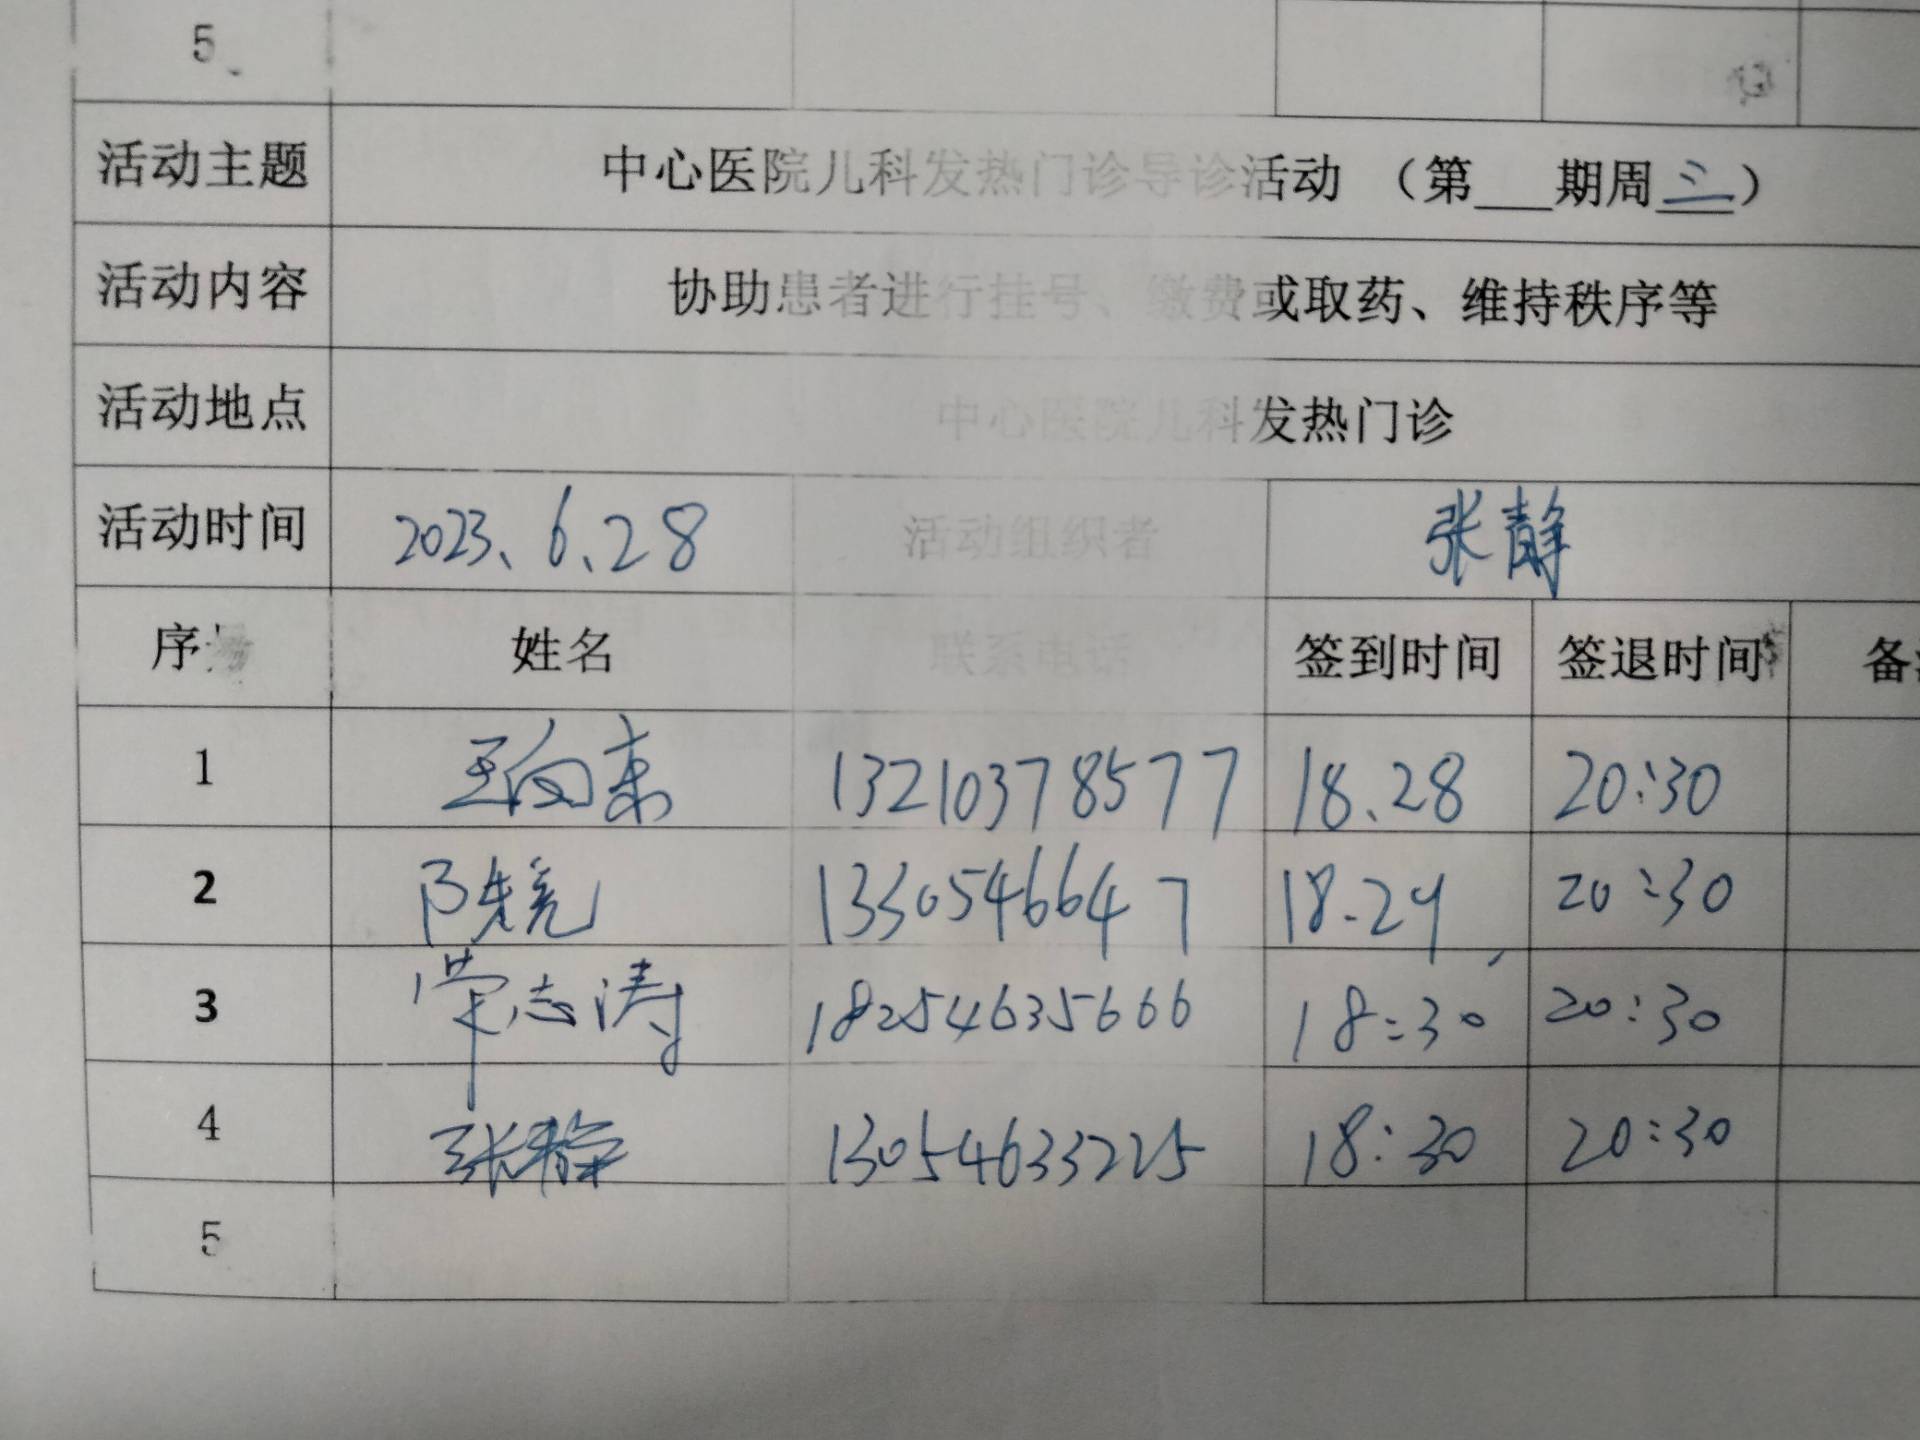 5
活动主题 中心医院儿科发热门诊导诊活动 （第___期周三）
活动内容 协助患者进行挂号、缴费或取药、维持秩序等
活动地点 中心医院儿科发热门诊
活动时间 2023、6、28 活动组织者 张静
序号 姓名 联系电话 签到时间 签退时间 备
1 王向东 13210378577 18.28 20:30
2 陈霓 1330546647 18.29 20:30
3 常志涛 18254635666 18:30 20:30
4 张静 13054633225 18:30 20:30
5